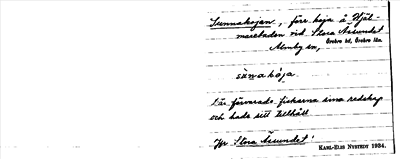 Sunnakojan, förr koja å Hjäl-
marebaden vid Stora Åssundet
Örebro hd, Örebro län.
Almby sn,
sùnakòja.
Där förvarade fiskarna sina redskap
och hade sitt tillhåll
Jfr Stora Åssundet!
KARL-ELIS NYSTEDT 1934.